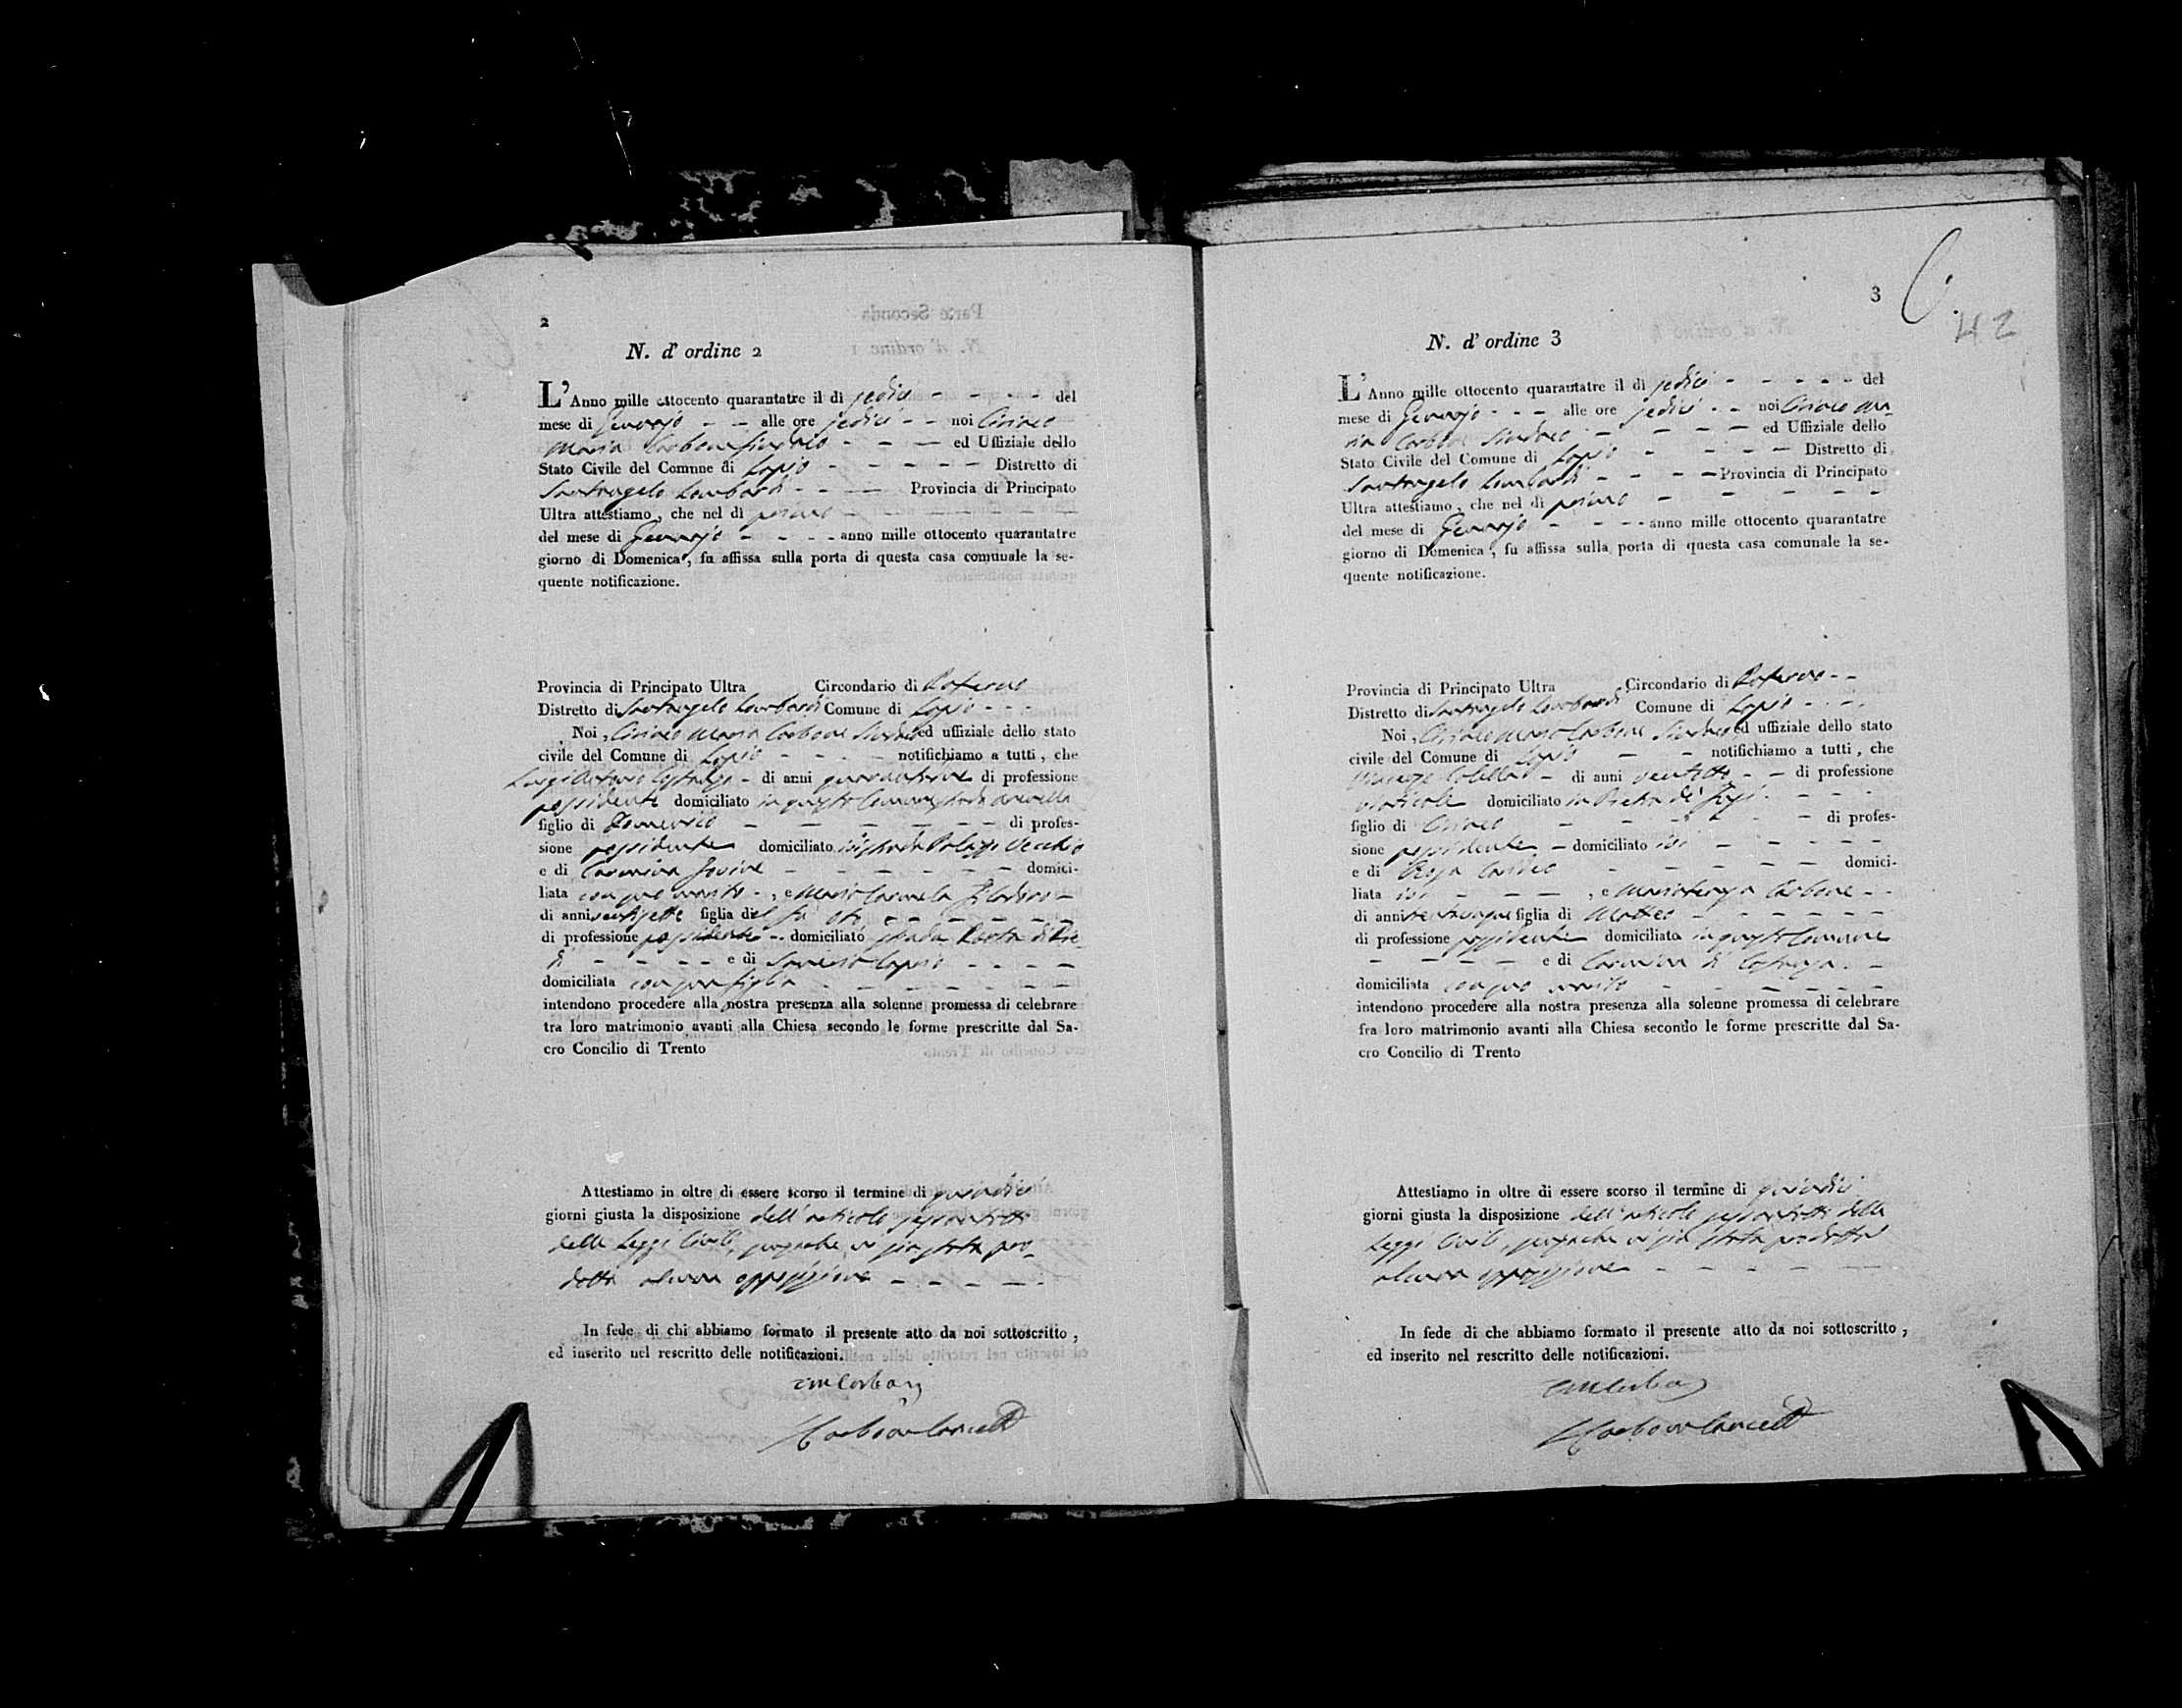 2
N. d' ordine 2
L'Anno mille ottocento quarantatre il dì sedici - - - - del
mese di Gennajo - - alle ore sedici - - noi Ciriaco
Maria Carbone Sindaco - - - ed Uffiziale dello
Stato Civile del Comune di Lapio - - - - - Distretto di
Santangelo Lombardi - - - Provincia di Principato
Ultra attestiamo, che nel dì primo - - - - - -
del mese di Gennajo - - - - anno mille ottocento quarantatre
giorno di Domenica, fu affissa sulla porta di questa casa comunale la se-
quente notificazione.
Provincia di Principato Ultra Circondario di Paterno
Distretto di Santangelo Lombardi Comune di Lapio - - -
Noi, Ciriaco Maria Carbone Sindaco ed uffiziale dello stato
civile del Comune di Lapio - - - - notifichiamo a tutti, che
- di anni di professione
possidente domiciliato in questo Comune strada
figlio di Domenico - - - - - - di profes-
sione possidente domiciliato ivi strada Palazzo Vecchio
e di Carmina Iovine - - - - - - domici-
liata con suo marito -, e Maria Carmela
di anni ventisette figlia del fu - - - - - -
di professione possidente - domiciliato strada
- - - - e di Caputo - - - -
domiciliata con sua figlia - - - - - -
intendono procedere alla nostra presenza alla solenne promessa di celebrare
tra loro matrimonio avanti alla Chiesa secondo le forme prescritte dal Sa-
cro Concilio di Trento
Attestiamo in oltre di essere scorso il termine di quindici
giorni giusta la disposizione dell'articolo sessantotto
delle Leggi Civili, senzache vi sia stata pro-
dotta alcuna opposizione - - - - -
In fede di chi abbiamo formato il presente atto da noi sottoscritto,
ed inserito nel rescritto delle notificazioni.
CM Carbone
3
42
N. d' ordine 3
L'Anno mille ottocento quarantatre il dì sedici - - - - - del
mese di Gennajo - - - alle ore sedici - - noi Ciriaco Ma-
ria Carbone Sindaco - - - - ed Uffiziale dello
Stato Civile del Comune di Lapio - - - - Distretto di
Santangelo Lombardi - - - - Provincia di Principato
Ultra attestiamo, che nel dì primo - - - - - -
del mese di Gennajo - - - - anno mille ottocento quarantatre
giorno di Domenica, fu affissa sulla porta di questa casa comunale la se-
quente notificazione.
Provincia di Principato Ultra Circondario di Paterno - -
Distretto di Santangelo Lombardi Comune di Lapio - - -
Noi, Ciriaco Maria Carbone Sindaco ed uffiziale dello stato
civile del Comune di Lapio - - notifichiamo a tutti, che
Colella - di anni ventotto - - di professione
domiciliato in Pietra di Fusi - - - -
figlio di Ciriaco - - - - - - di profes-
sione possidente - domiciliato ivi - - - - -
e di Rosa - - - - - domici-
liata ivi - - - , e Mariateresa Carbone - -
di anni figlia di Matteo - - - - - -
di professione possidente domiciliato in questo Comune
- - - - e di Carmina - -
domiciliata con suo marito - - - - - -
intendono procedere alla nostra presenza alla solenne promessa di celebrare
fra loro matrimonio avanti alla Chiesa secondo le forme prescritte dal Sa-
cro Concilio di Trento
Attestiamo in oltre di essere scorso il termine di quindici
giorni giusta la disposizione dell'articolo sessantotto delle
Leggi Civili, senzache vi sia stata prodotta
alcuna opposizione - - - - -
In fede di che abbiamo formato il presente atto da noi sottoscritto,
ed inserito nel rescritto delle notificazioni.
CM Carbone